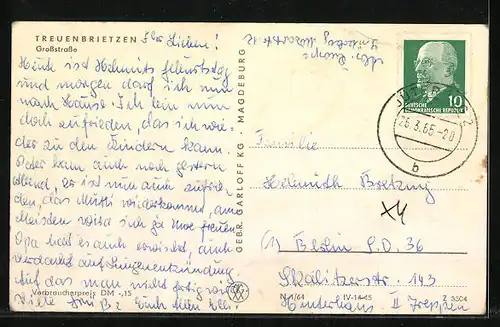 TREUENBRIETZEN
Großstraße
Ihr Lieben!
Heut ist Helmuts Geburtstag
und morgen darf ich nun
nach Hause. Ich bin nun
doch zufrieden, das ich wie-
der zu den Kindern kann.
Peter kam auch noch gestern
Abend, er ist nun auch zufrie-
den, das Mutti wiederkommt, am
Meisten wird sich ja Uwe freuen
Opa hat es auch erwischt, auch
Verdacht auf Lungenentzündung
Auf das man nicht fertig wird
Viele
Verbraucherpreis DM -,15
GEBR. GARLOFF KG · MAGDEBURG
10
DEUTSCHE
DEMOKRATISCHE REPUBLIK
26.3.66-20
b
Familie
Helmuth
(1) Berlin S.O. 36
Skalitzerstr. 143
Hinterhaus II Treppen
N 1/64
IV-14-45
Z 3504